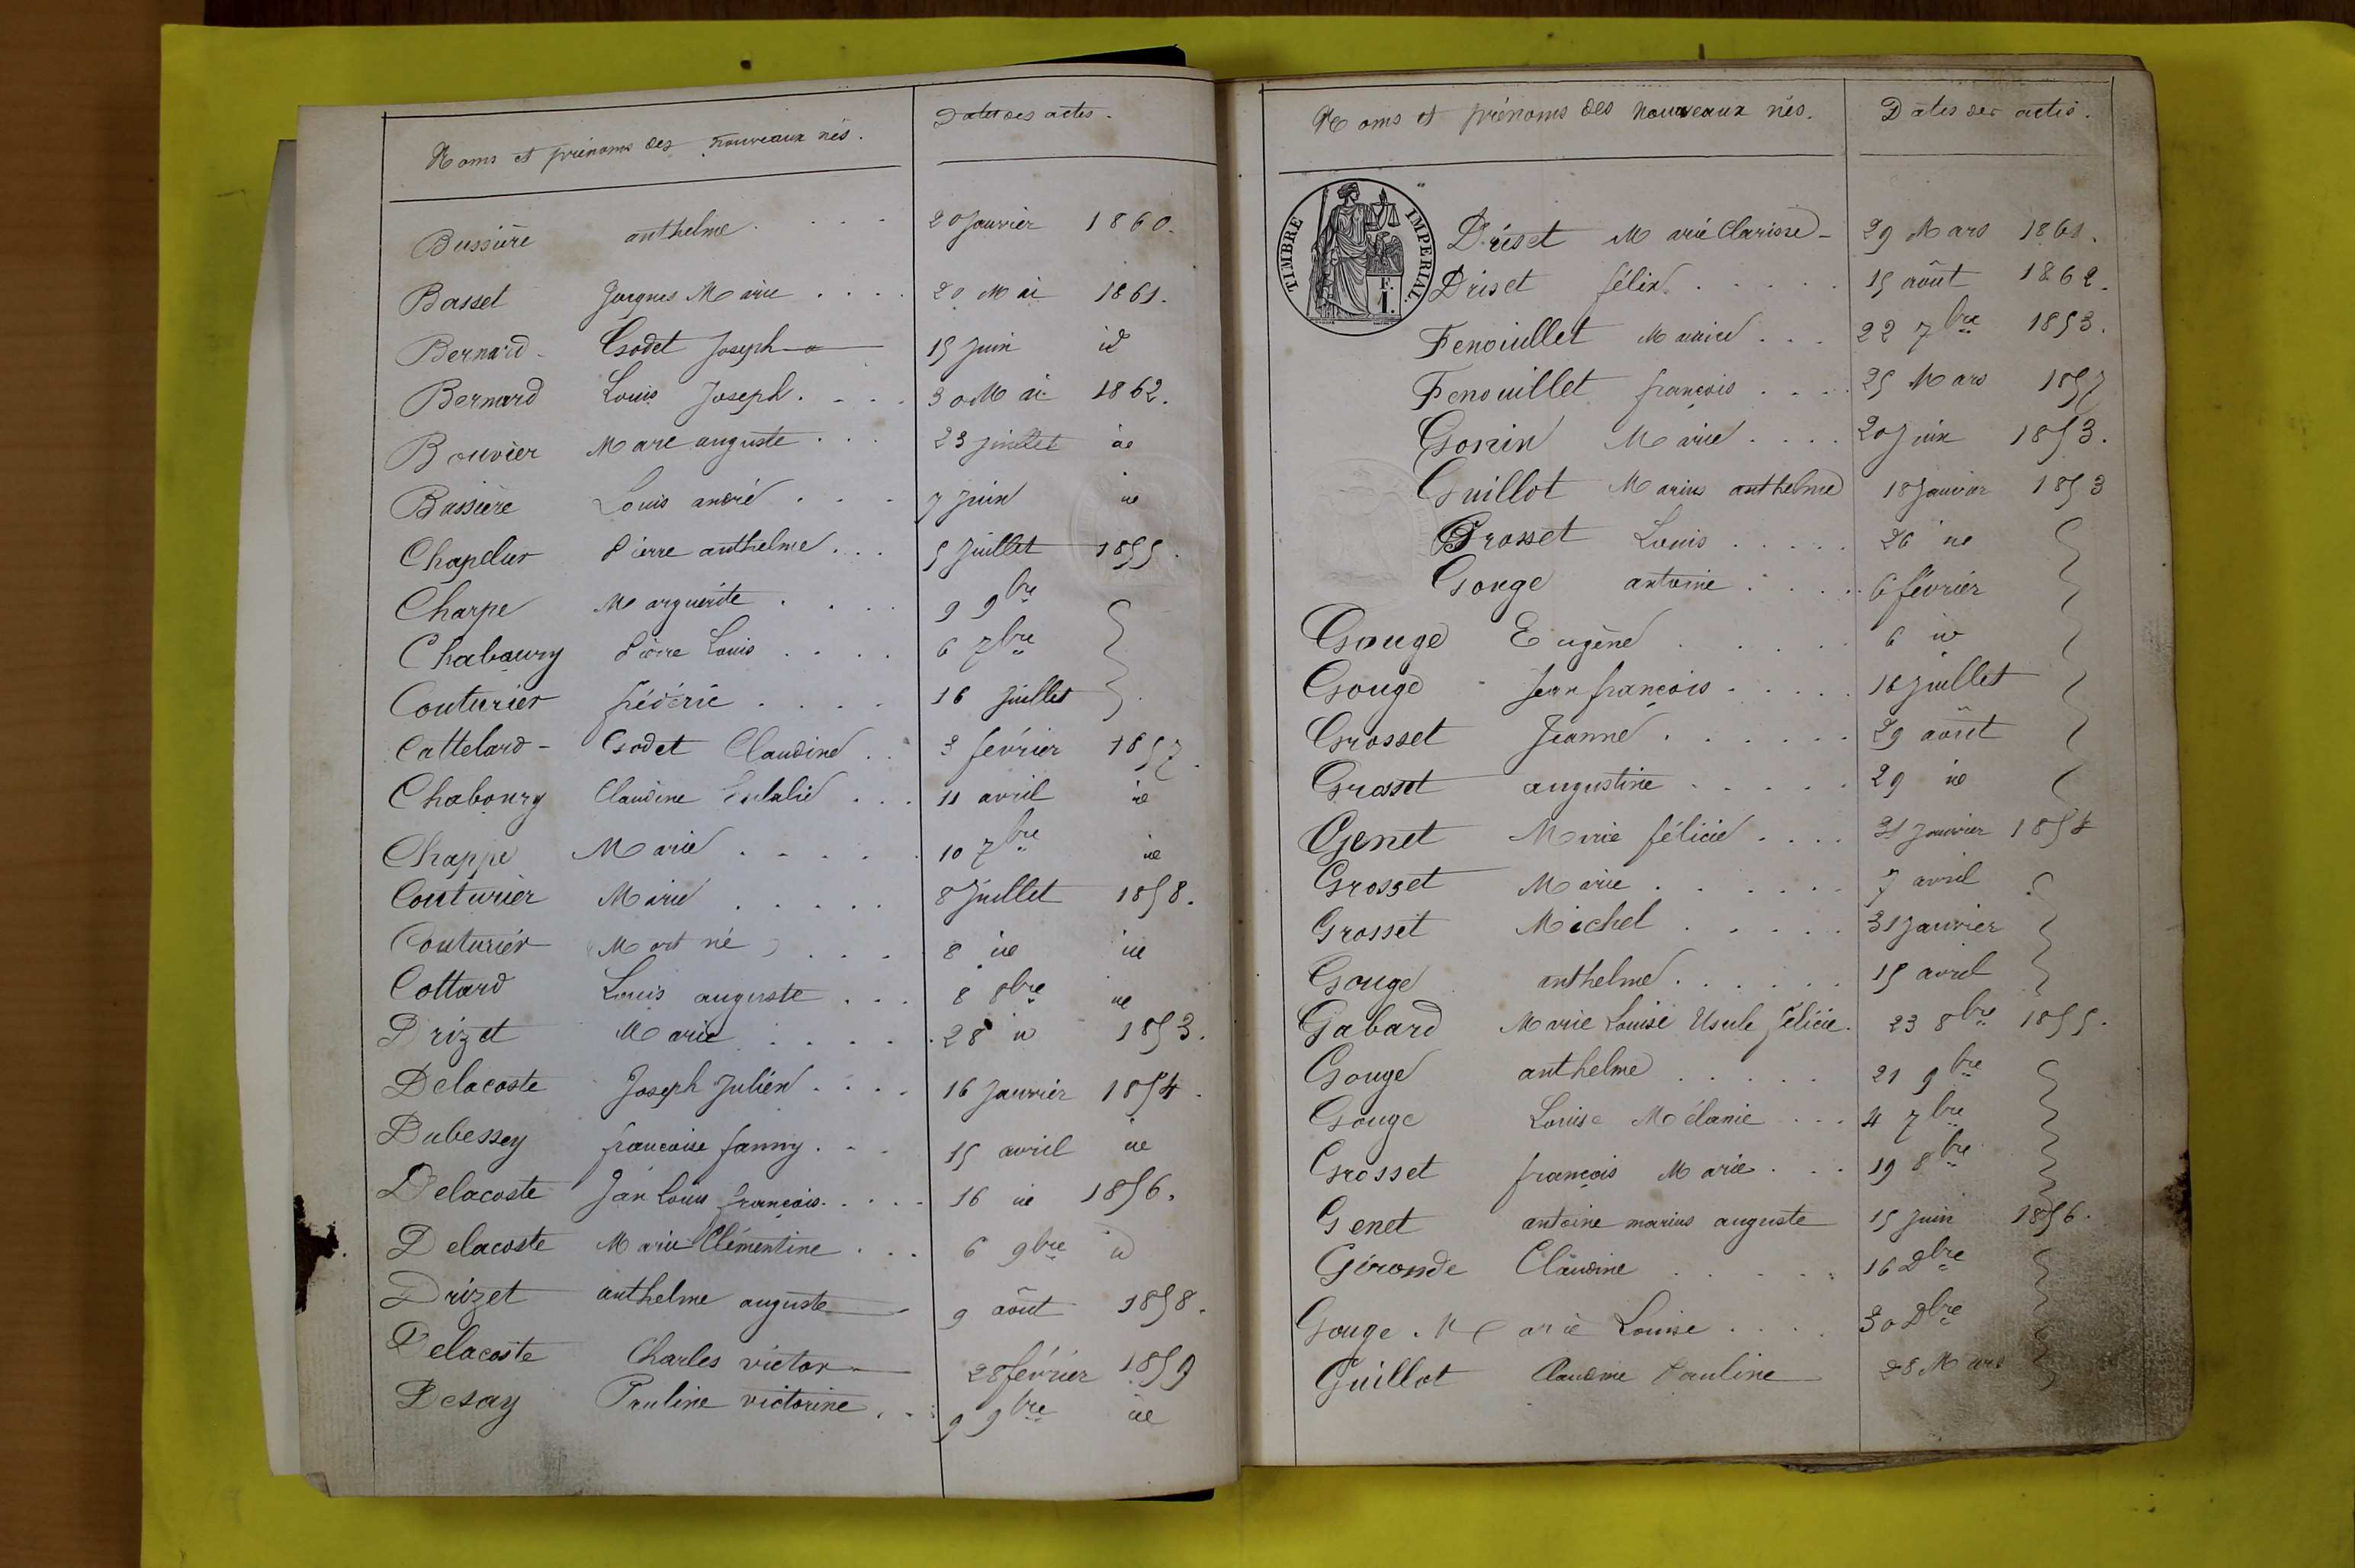 Noms et prénoms des nouveaux nés. Dates des actes.
Bussière anthelme . . . . 20 Janvier 1860.
Basset Jacques Marie . . . . 20 Mai 1861.
Bernard - Godet Joseph 15 Juin id
Bernard Louis Joseph . . . . 30 Mai 1862.
Bouvier Marc auguste . . . 23 juillet id
Bussière Louis andré . . . 7 Juin id
Chapelur Pierre anthelme . . . 5 Juillet 1855.
Charpe Marguerite . . . . 9 9bre
Chaboury Pierre Louis . . . . 6 7bre
Couturier frédéric . . . . 16 Juillet
Cattelard - Godet Claudine . . 3 février 1857.
Chaboury Claudine Eulalie . . . 11 avril id
Chappe Marie . . . . . 10 7bre id
Couturier Marie . . . . . 8 Juillet 1858.
Couturier (Mort né) . . . . 8 id id
Cottard Louis auguste . . . 8 8bre id
Drizet Marie . . . . . 28 id 1853.
Delacoste Joseph Julien . . . . 16 Janvier 1854.
Dubessey francoise fanny . . . 15 avril id
Delacoste Jean Louis françois . . . . 16 id 1856.
Delacoste Marie Clémentine . . . 6 9bre id
Drizet anthelme auguste 9 août 1858.
Delacoste Charles victor 28 février 1859
Desay Pauline victorine . . 9 9bre id
Noms et prénoms des nouveaux nés. Dates des actes.
TIMBRE IMPERIAL. 1 F.
Driset Marie Clarisse - 29 Mars 1861.
Driset félix . . . . . 15 août 1862.
Fenouillet Marie . . . 22 7bre 1853.
Fenouillet françois . . . . 25 Mars 1857
Gonin Marie . . . . 20 Juin 1853.
Guillot Marius anthelme 18 Janvier 1853
Grosset Louis . . . . . 26 id
Gouge antoine . . . . 6 février
Gouge Eugène . . . . . 6 id
Gouge Jean françois . . . . . 16 Juillet
Grosset Jeanne . . . . . . 29 août
Grosset augustine . . . . . 29 id
Genet Marie félicie . . . . 31 Janvier 1854
Grosset Marie . . . . . . 7 avril
Grosset Michel . . . . . 31 Janvier
Gouge anthelme . . . . . . 15 avril
Gabard Marie Louise Usule félicie. 23 8bre 1855.
Gouge anthelme . . . . . 21 9bre
Gouge Louise Mélanie . . . 4 7bre
Grosset françois Marie . . . 19 8bre
Genet antoine marius auguste 15 Juin 1856.
Géronde Claudine . . . . . 16 Dbre
Gouge. Marie Louise . . . . 30 Dbre
Guillot Claudine Pauline 28 Mars